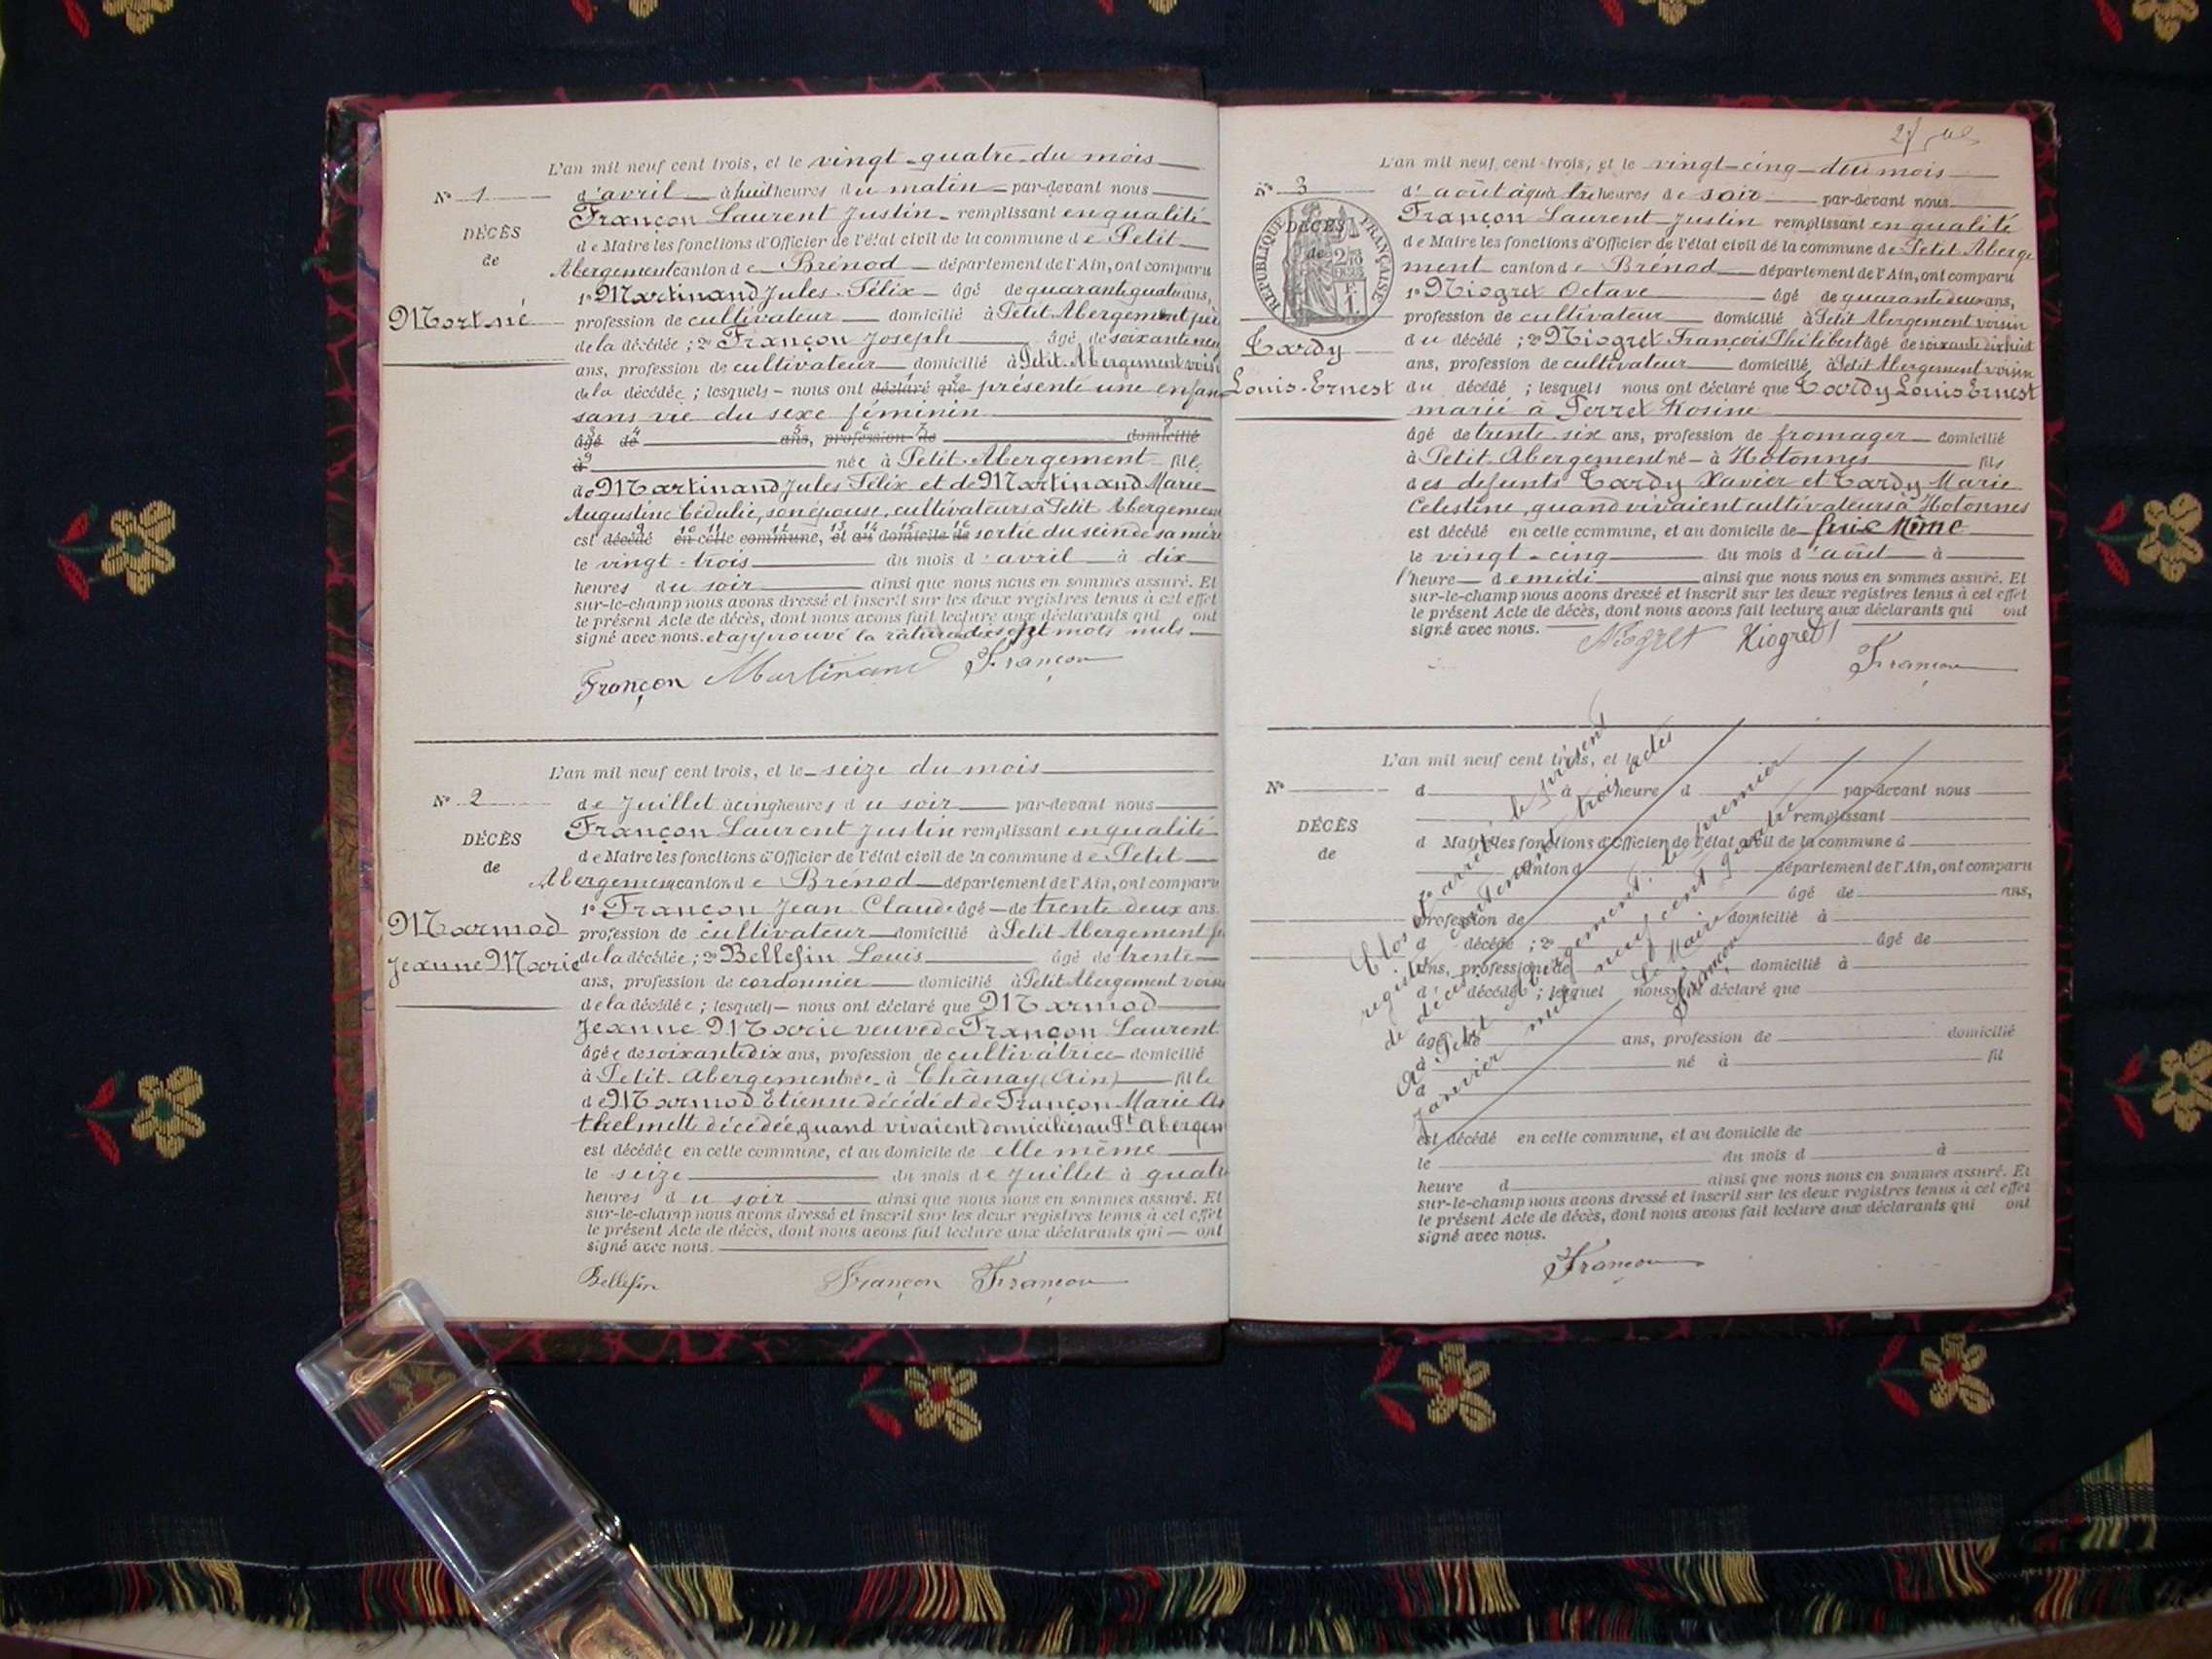 L'an mil neuf cent trois, et le vingt-quatre du mois
N° 1
d'avril à huit heures du matin par-devant nous
Françon Laurent Justin remplissant en qualité
DÉCÈS
de Maire les fonctions d'Officier de l'état civil de la commune de Petit
de
Abergement canton de Brénod département de l'Ain, ont comparu
1° Martinand Jules Félix âgé de quarante quatre ans,
Mort né
profession de cultivateur domicilié à Petit Abergement père
de la décédée ; 2° Françon Joseph âgé de soixante neuf
ans, profession de cultivateur domicilié à Petit Abergement voisin
de la décédée ; lesquels nous ont déclaré que présenté une enfant
sans vie du sexe féminin
âgé de ans, profession de domicilié
à née à Petit Abergement fille
de Martinand Jules Félix et de Martinand Marie
Augustine Cédulie, son épouse, cultivateurs à Petit Abergement
est décédé en celle commune, et au domicile de sortie du sein de sa mère
le vingt-trois du mois d'avril à dix
heures du soir ainsi que nous nous en sommes assuré. Et
sur-le-champ nous avons dressé et inscrit sur les deux registres tenus à cet effet
le présent Acte de décès, dont nous avons fait lecture aux déclarants qui ont
signé avec nous. et approuvé la rature de seize mots nuls
Françon Martinand Françon
L'an mil neuf cent trois, et le seize du mois
N° 2
de Juillet à cinq heures du soir par-devant nous
Françon Laurent Justin remplissant en qualité
DÉCÈS
de Maire les fonctions d'Officier de l'état civil de la commune de Petit
de
Abergement canton de Brénod département de l'Ain, ont comparu
1° Françon Jean Claude âgé de trente deux ans
Marmod
profession de cultivateur domicilié à Petit Abergement
Jeanne Marie
de la décédée ; 2° Bellefin Louis âgé de trente
ans, profession de cordonnier domicilié à Petit Abergement voisin
de la décédée ; lesquels nous ont déclaré que Marmod
Jeanne Marie veuve de Françon Laurent
âgée de soixante dix ans, profession de cultivatrice domicilié
à Petit Abergement née à Chânay (Ain) fille
de Marmod Étienne décédé et de Françon Marie An
thelmette décédée, quand vivaient domiciliés au Pt Abergem
est décédée en celle commune, et au domicile de elle même
le seize du mois de Juillet à quatre
heures du soir ainsi que nous nous en sommes assuré. Et
sur-le-champ nous avons dressé et inscrit sur les deux registres tenus à cet effet
le présent Acte de décès, dont nous avons fait lecture aux déclarants qui ont
signé avec nous.
Bellefin Françon Françon
L'an mil neuf cent trois, et le vingt-cinq du mois
N° 3
d'août à quatre heures de soir par-devant nous
Françon Laurent Justin remplissant en qualité
RÉPUBLIQUE FRANÇAISE
DÉCÈS
de Maire les fonctions d'Officier de l'état civil de la commune de Petit Aberge
de
ment canton de Brénod département de l'Ain, ont comparu
1° Niogret Octave âgé de quarante deux ans,
profession de cultivateur domicilié à Petit Abergement voisin
Tardy
du décédé ; 2° Niogret François Philibert âgé de soixante dix huit
ans, profession de cultivateur domicilié à Petit Abergement voisin
Louis-Ernest
du décédé ; lesquels nous ont déclaré que Tardy Louis Ernest
marié à Perret Rosine
âgé de trente six ans, profession de fromager domicilié
à Petit Abergement né à Hotonnes fils
des defunts Tardy Xavier et Tardy Marie
Celestine, quand vivaient cultivateurs à Hotonnes
est décédé en celle commune, et au domicile de lui Même
le vingt-cinq du mois d'août à
l'heure de midi ainsi que nous nous en sommes assuré. Et
sur-le-champ nous avons dressé et inscrit sur les deux registres tenus à cet effet
le présent Acte de décès, dont nous avons fait lecture aux déclarants qui ont
signé avec nous.
Niogret Niogret
Françon
L'an mil neuf cent trois, et le
N°
d à heure d par-devant nous
remplissant
DÉCÈS
d Maire les fonctions d'Officier de l'état civil de la commune d
de
canton d département de l'Ain, ont comparu
âgé de ans,
profession de domicilié à
d décédé ; 2° âgé de
ans, profession de domicilié à
d décédé ; lesquel nous ont déclaré que
âgé de ans, profession de domicilié
à né à fil
d
est décédé en celle commune, et au domicile de
le du mois d à
heure d ainsi que nous nous en sommes assuré. Et
sur-le-champ nous avons dressé et inscrit sur les deux registres tenus à cet effet
le présent Acte de décès, dont nous avons fait lecture aux déclarants qui ont
signé avec nous.
Clos et arrêté le présent
registre contenant trois actes
de décès
A Petit Abergement, le premier
Janvier mil neuf cent quatre
Le Maire
Françon
Françon